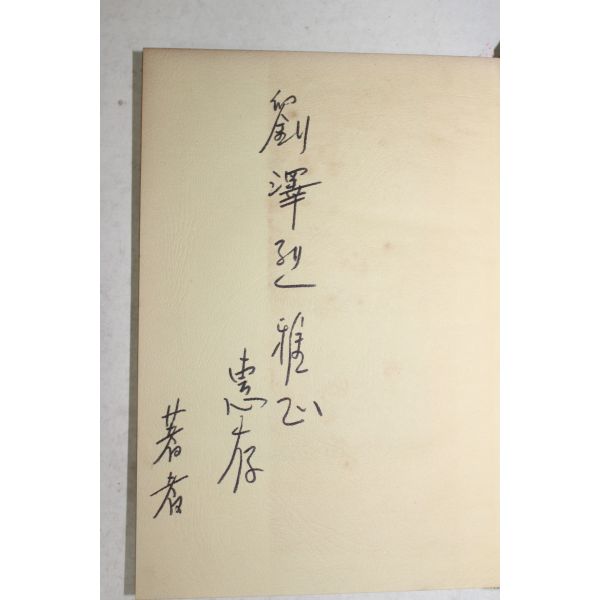 劉澤烈雅正
惠存
著者